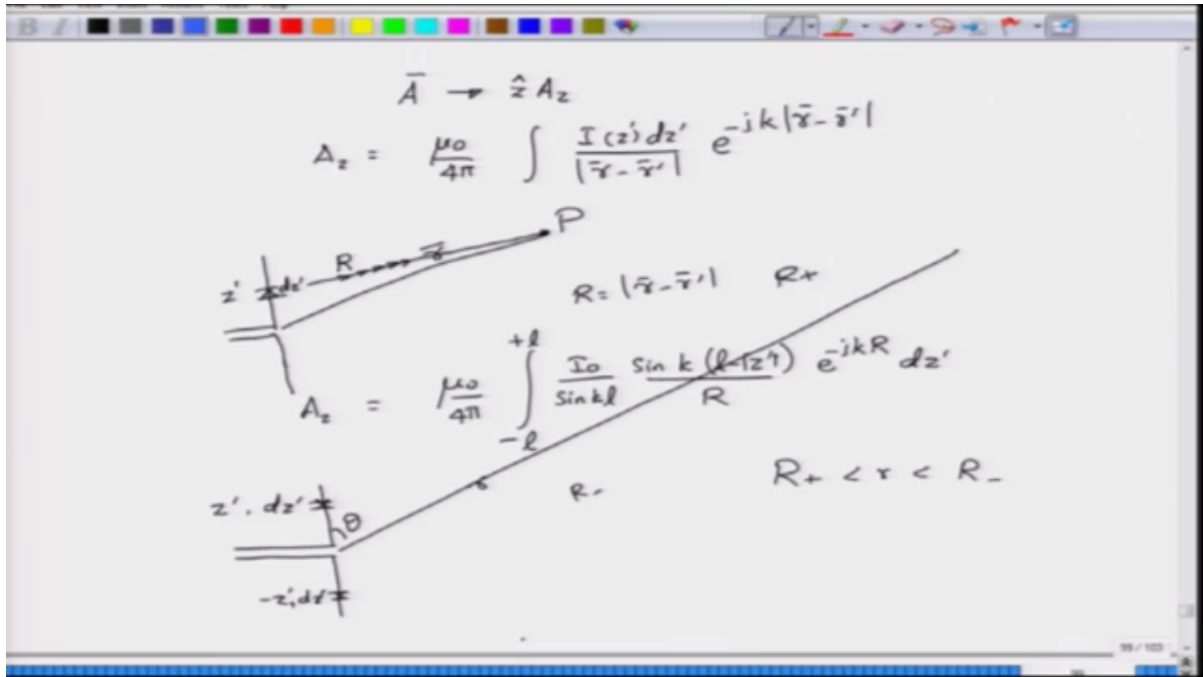 Ā → ẑ A_z
A_z = μ₀/4π ∫ I(z')dz'/|r̄ - r̄'| e^{-jk|r̄ - r̄'|}
P
R r̄
z' dz'
R = |r̄ - r̄'| R+
A_z = μ₀/4π ∫_{-l}^{+l} I₀/sin kl sin k(l-|z'|)/R e^{-jkR} dz'
r R- R+ < r < R-
z', dz'
θ
-z', dz'
99 / 103